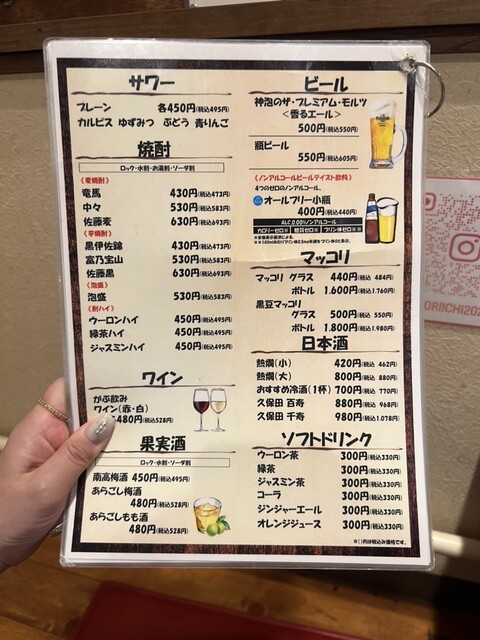 サワー
プレーン 各450円(税込495円)
カルピス ゆずみつ ぶどう 青りんご
焼酎
ロック・水割・お湯割・ソーダ割
(麦焼酎)
竜馬 430円(税込473円)
中々 530円(税込583円)
佐藤麦 630円(税込693円)
(芋焼酎)
黒伊佐錦 430円(税込473円)
富乃宝山 530円(税込583円)
佐藤黒 630円(税込693円)
(泡盛)
泡盛 530円(税込583円)
(酎ハイ)
ウーロンハイ 450円(税込495円)
緑茶ハイ 450円(税込495円)
ジャスミンハイ 450円(税込495円)
ワイン
がぶ飲み
ワイン(赤・白)
480円(税込528円)
果実酒
ロック・水割・ソーダ割
南高梅酒 450円(税込495円)
あらごし梅酒
480円(税込528円)
あらごしもも酒
480円(税込528円)
ビール
神泡のザ・プレミアム・モルツ
<香るエール>
500円(税込550円)
瓶ビール
550円(税込605円)
(ノンアルコールビールテイスト飲料)
4つのゼロのノンアルコール。
オールフリー小瓶
400円(税込440円)
ALC.0.00%ノンアルコール
カロリーゼロ※ 糖質ゼロ※ プリン体ゼロ※
マッコリ
マッコリ グラス 440円(税込 484円)
ボトル 1.600円(税込1.760円)
黒豆マッコリ
グラス 500円(税込 550円)
ボトル 1.800円(税込1.980円)
日本酒
熱燗(小) 420円(税込 462円)
熱燗(大) 800円(税込 880円)
おすすめ冷酒(1杯) 700円(税込 770円)
久保田 百寿 880円(税込 968円)
久保田 千寿 980円(税込1.078円)
ソフトドリンク
ウーロン茶 300円(税込330円)
緑茶 300円(税込330円)
ジャスミン茶 300円(税込330円)
コーラ 300円(税込330円)
ジンジャーエール 300円(税込330円)
オレンジジュース 300円(税込330円)
※()内は税込み価格です。
DRIICHI202